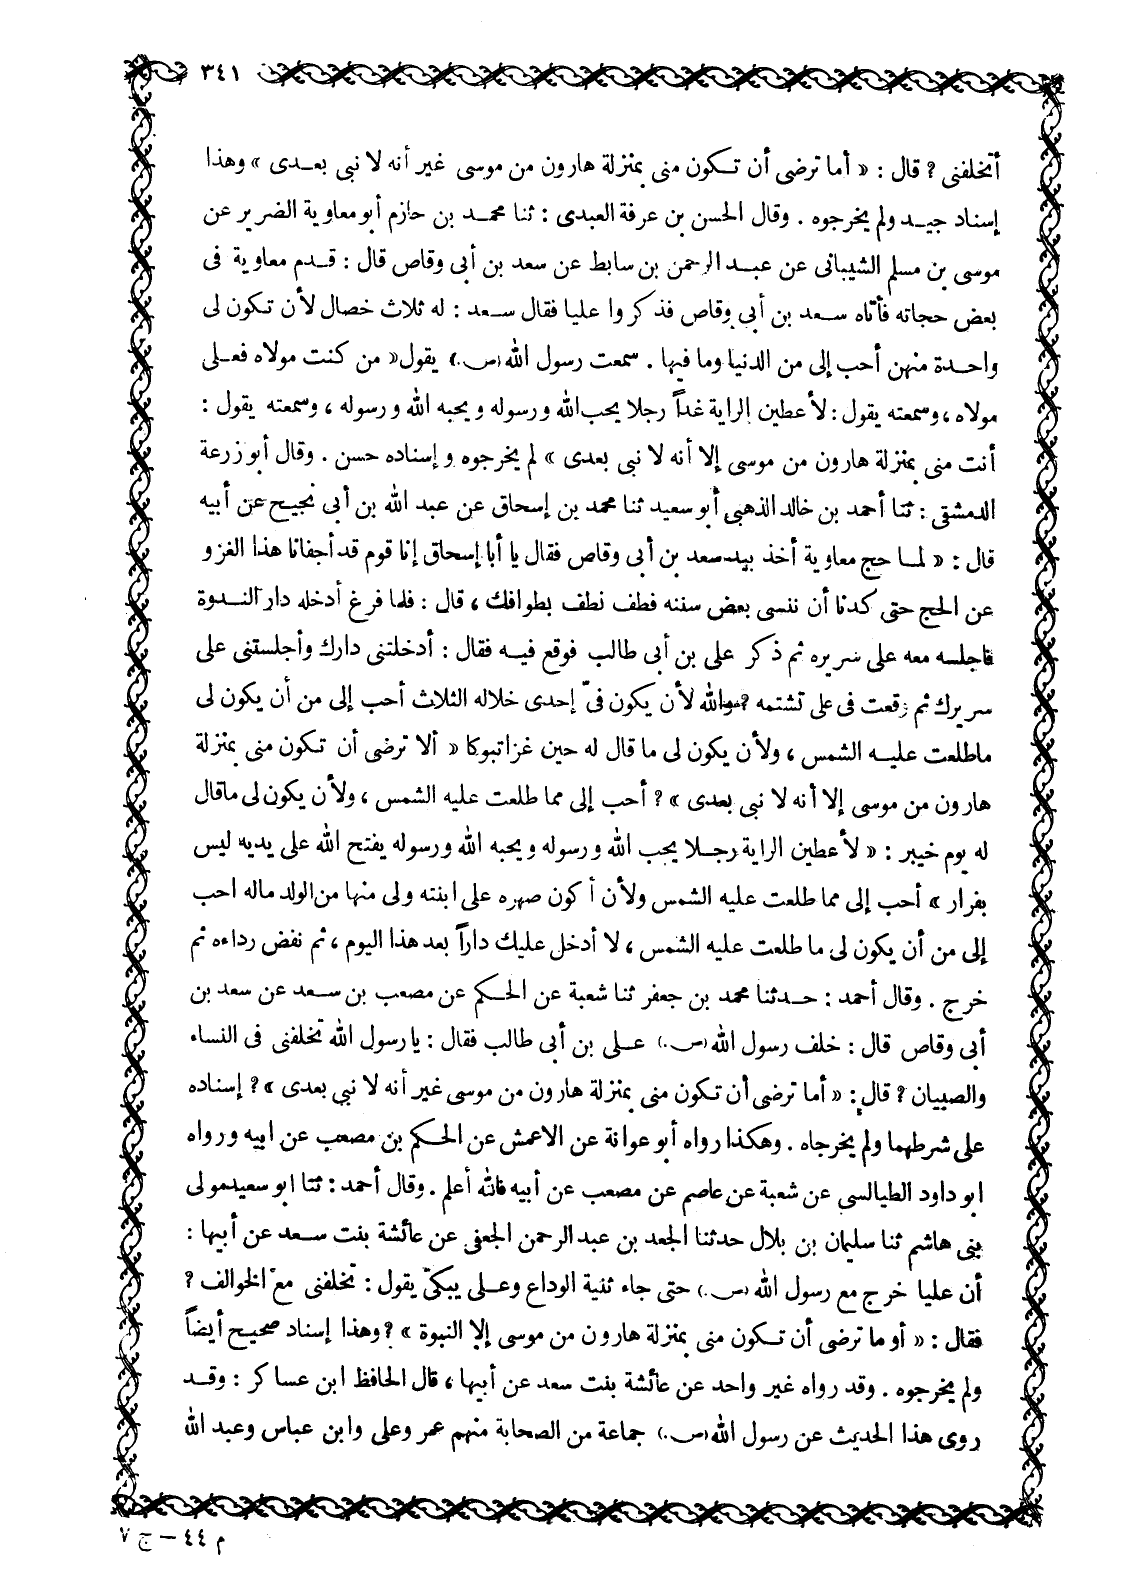 ٣٤١
أتخلفنى ? قال : « أما ترضى أن تكون منى بمنزلة هارون من موسى غير أنه لا نبى بعدى » وهذا
إسناد جيد ولم يخرجوه . وقال الحسن بن عرفة العبدى : ثنا محمد بن حازم أبو معاوية الضرير عن
موسى بن مسلم الشيبانى عن عبد الرحمن بن سابط عن سعد بن أبى وقاص قال : قدم معاوية فى
بعض حجاته فأتاه سعد بن أبى وقاص فذكروا عليا فقال سعد : له ثلاث خصال لأن تكون لى
واحدة منهن أحب إلى من الدنيا وما فيها . سمعت رسول الله (ص.) يقول « من كنت مولاه فعلى
مولاه ، وسمعته يقول : لأعطين الراية غداً رجلا يحب الله ورسوله ويحبه الله ورسوله ، وسمعته يقول :
أنت منى بمنزلة هارون من موسى إلا أنه لا نبى بعدى » لم يخرجوه و إسناده حسن . وقال أبو زرعة
الدمشقى : ثنا أحمد بن خالد الذهبى أبو سعيد ثنا محمد بن إسحاق عن عبد الله بن أبى نجيح عن أبيه
قال : « لما حج معاوية أخذ بيد سعد بن أبى وقاص فقال يا أبا إسحاق إنا قوم قد أجفانا هذا الغزو
عن الحج حتى كدنا أن ننسى بعض سننه فطف نطف بطوافك ، قال : فلما فرغ أدخله دار الندوة
فاجلسه معه على سريره ثم ذكر على بن أبى طالب فوقع فيه فقال : أدخلتنى دارك وأجلستنى على
سريرك ثم وقعت فى على تشتمه ? والله لأن يكون فىّ إحدى خلاله الثلاث أحب إلى من أن يكون لى
ماطلعت عليه الشمس ، ولأن يكون لى ما قال له حين غزا تبوكا « ألا ترضى أن تكون منى بمنزلة
هارون من موسى إلا أنه لا نبى بعدى » ? أحب إلى مما طلعت عليه الشمس ، ولأن يكون لى ماقال
له يوم خيبر : « لأعطين الراية رجلا يحب الله ورسوله ويحبه الله ورسوله يفتح الله على يديه ليس
بفرار » أحب إلى مما طلعت عليه الشمس ولأن أكون صهره على ابنته ولى منها من الولد ماله احب
إلى من أن يكون لى ما طلعت عليه الشمس ، لا أدخل عليك داراً بعد هذا اليوم ، ثم نفض رداءه ثم
خرج . وقال أحمد : حدثنا محمد بن جعفر ثنا شعبة عن الحكم عن مصعب بن سعد عن سعد بن
أبى وقاص قال : خلف رسول الله (ص.) على بن أبى طالب فقال : يا رسول الله تخلفنى فى النساء
والصبيان ? قال : « أما ترضى أن تكون منى بمنزلة هارون من موسى غير أنه لا نبى بعدى » ? إسناده
على شرطهما ولم يخرجاه . وهكذا رواه أبو عوانة عن الاعمش عن الحكم بن مصعب عن ابيه ورواه
ابو داود الطيالسى عن شعبة عن عاصم عن مصعب عن أبيه فالله أعلم . وقال أحمد : ثنا ابو سعيد مولى
بنى هاشم ثنا سليمان بن بلال حدثنا الجعد بن عبد الرحمن الجعفى عن عائشة بنت سعد عن أبيها :
أن عليا خرج مع رسول الله (ص.) حتى جاء ثنية الوداع وعلى يبكى يقول : تخلفنى مع الخوالف ?
فقال : « أو ما ترضى أن تكون منى بمنزلة هارون من موسى إلا النبوة » ? وهذا إسناد صحيح أيضاً
ولم يخرجوه . وقد رواه غير واحد عن عائشة بنت سعد عن أبيها ، قال الحافظ ابن عساكر : وقد
روى هذا الحديث عن رسول الله (ص.) جماعة من الصحابة منهم عمر وعلى وابن عباس وعبد الله
م ٤٤ – ج ٧